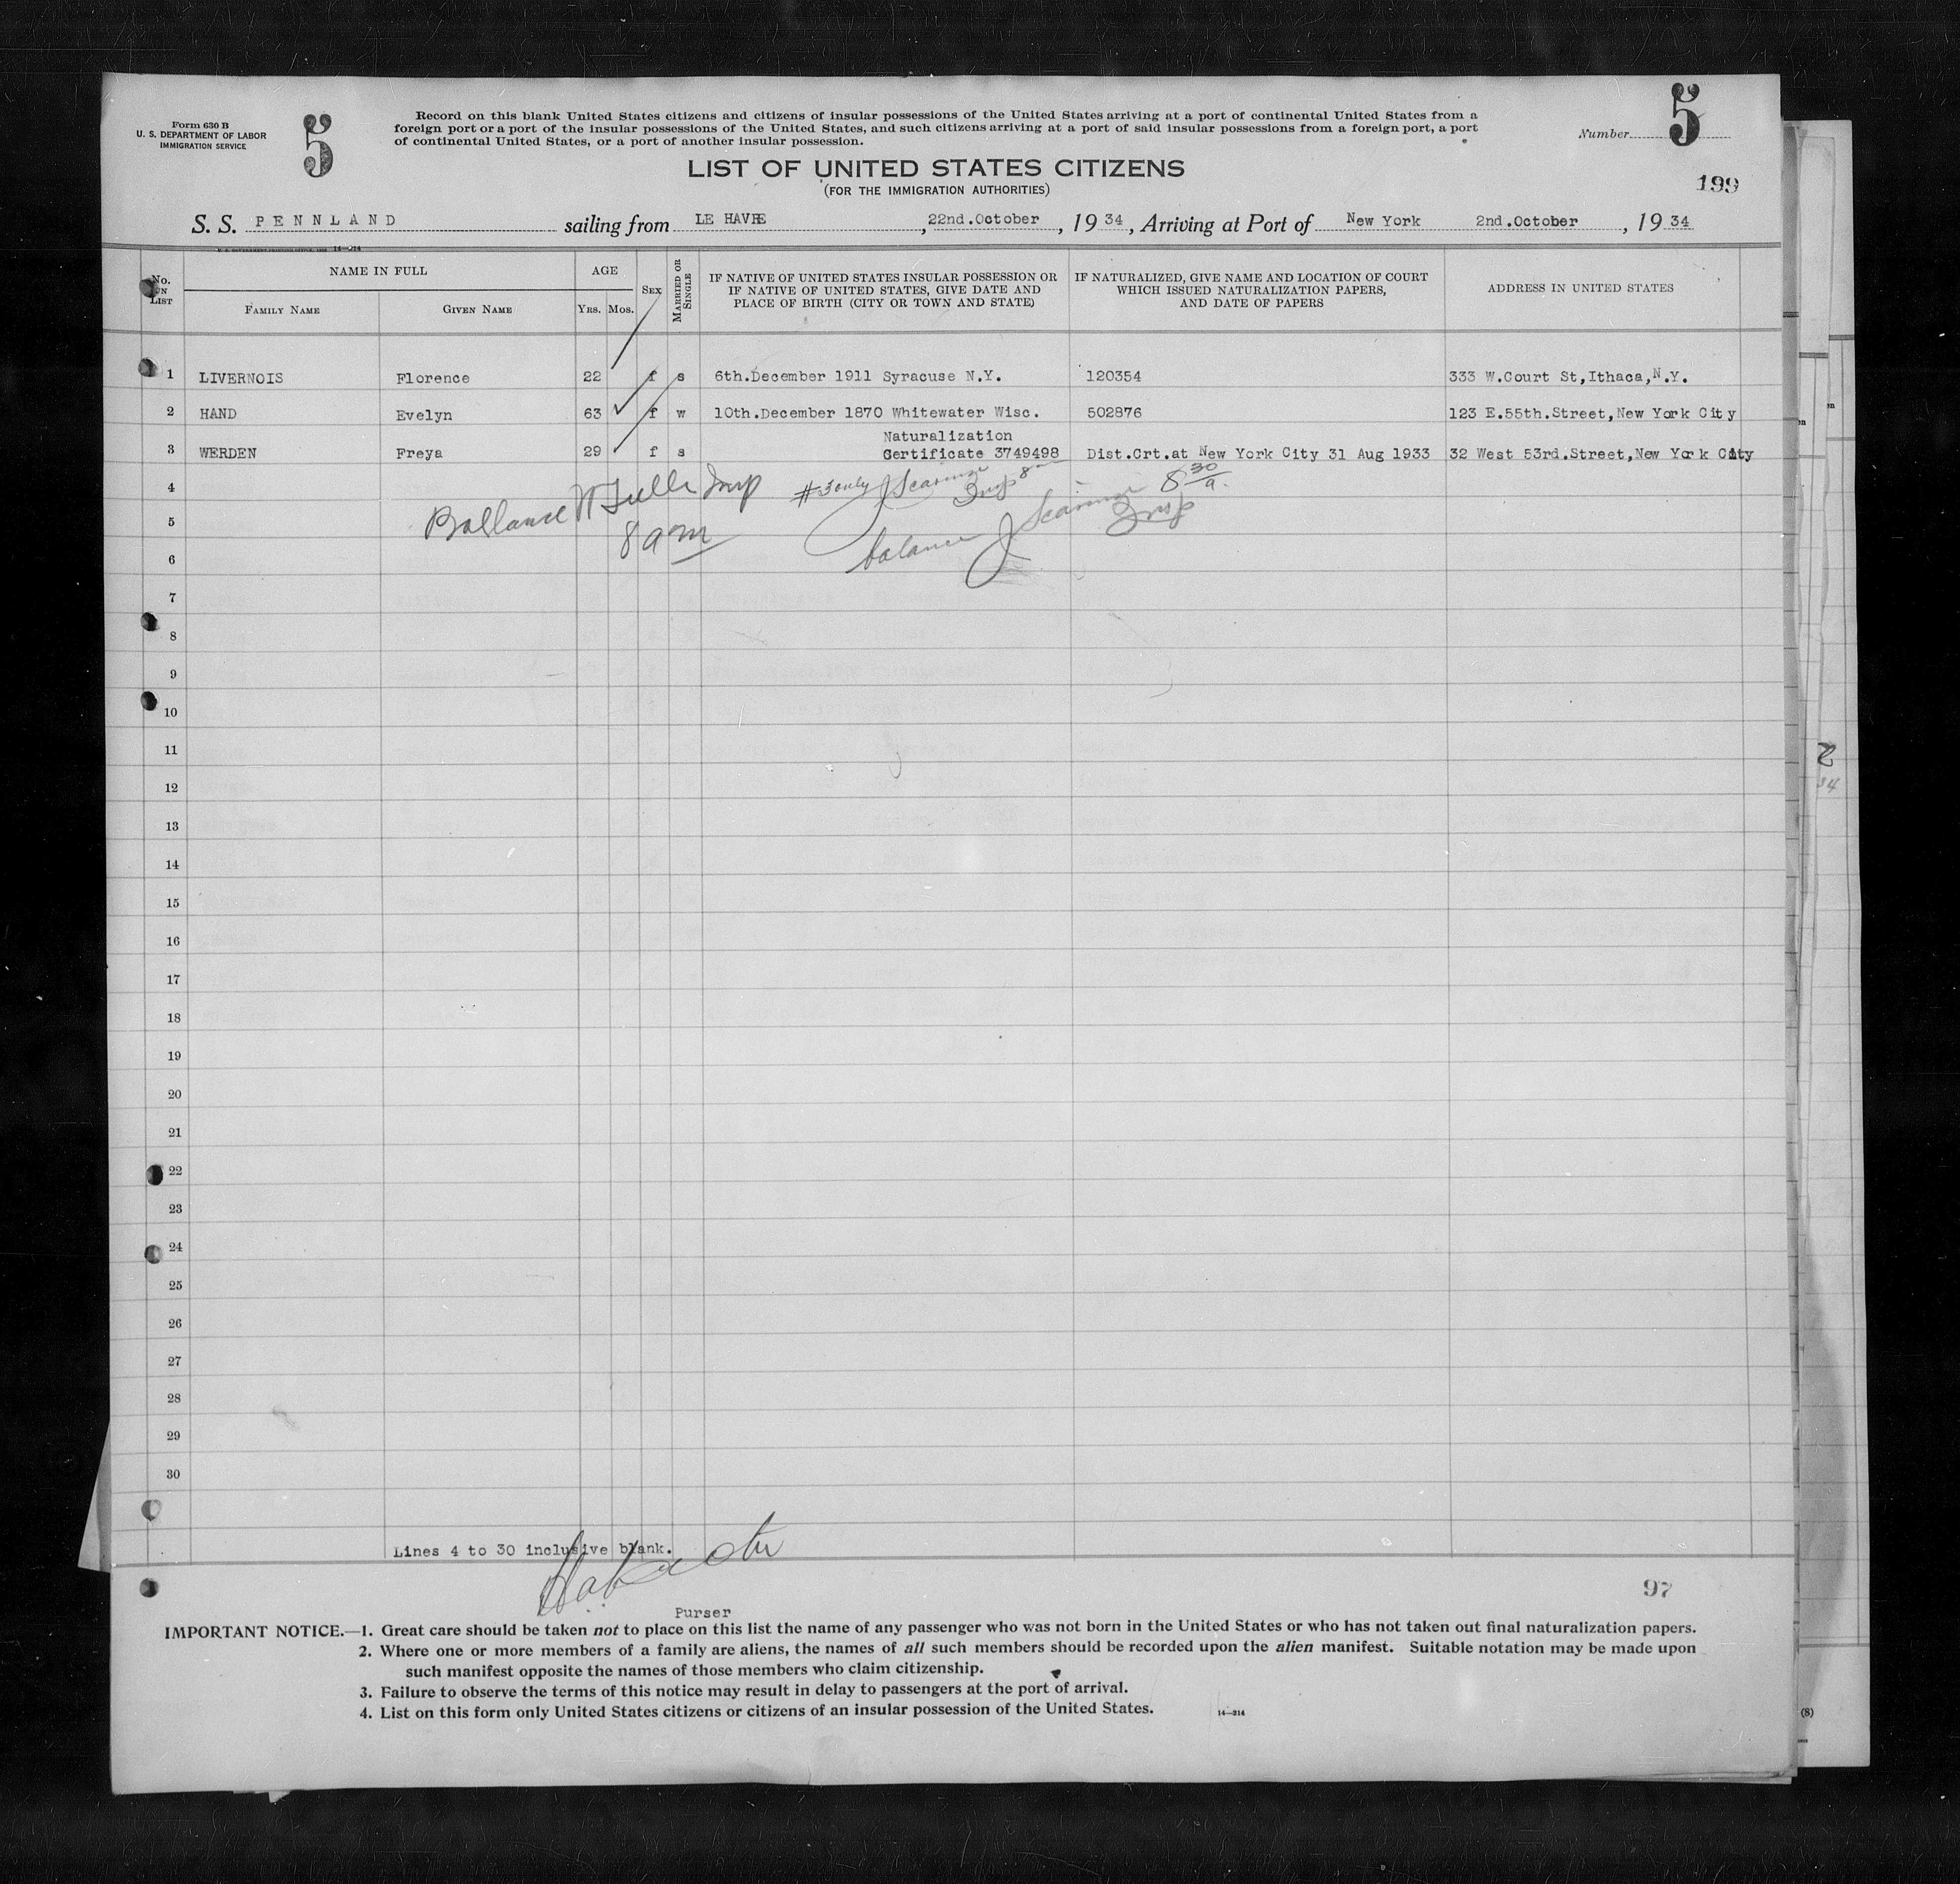 Form 630 B
U. S. DEPARTMENT OF LABOR
IMMIGRATION SERVICE
5
Record on this blank United States citizens and citizens of insular possessions of the United States arriving at a port of continental United States from a
foreign port or a port of the insular possessions of the United States, and such citizens arriving at a port of said insular possessions from a foreign port, a port
of continental United States, or a port of another insular possession.
Number 5
LIST OF UNITED STATES CITIZENS
(FOR THE IMMIGRATION AUTHORITIES)
199
S. S. PENNLAND sailing from LE HAVRE, 22nd.October, 1934, Arriving at Port of New York 2nd.October, 1934
14-214
No. on List
NAME IN FULL
Family Name
Given Name
AGE
Yrs. Mos.
Sex
Married or Single
IF NATIVE OF UNITED STATES INSULAR POSSESSION OR
IF NATIVE OF UNITED STATES, GIVE DATE AND
PLACE OF BIRTH (CITY OR TOWN AND STATE)
IF NATURALIZED, GIVE NAME AND LOCATION OF COURT
WHICH ISSUED NATURALIZATION PAPERS,
AND DATE OF PAPERS
ADDRESS IN UNITED STATES
1 LIVERNOIS Florence 22 f s 6th.December 1911 Syracuse N.Y. 120354 333 W.Court St,Ithaca,N.Y.
2 HAND Evelyn 63 f w 10th.December 1870 Whitewater Wisc. 502876 123 E.55th.Street,New York City
Naturalization
3 WERDEN Freya 29 f s Certificate 3749498 Dist.Crt.at New York City 31 Aug 1933 32 West 53rd.Street,New York City
4 #3 only J Insp 8
Ballance Insp 8 30/a.
5 J Insp
8 am balance
6
7
8
9
10
11
12
13
14
15
16
17
18
19
20
21
22
23
24
25
26
27
28
29
30
Lines 4 to 30 inclusive blank.
97
Purser
IMPORTANT NOTICE.—1. Great care should be taken not to place on this list the name of any passenger who was not born in the United States or who has not taken out final naturalization papers.
2. Where one or more members of a family are aliens, the names of all such members should be recorded upon the alien manifest. Suitable notation may be made upon
such manifest opposite the names of those members who claim citizenship.
3. Failure to observe the terms of this notice may result in delay to passengers at the port of arrival.
4. List on this form only United States citizens or citizens of an insular possession of the United States.
14—214
2
34
(8)